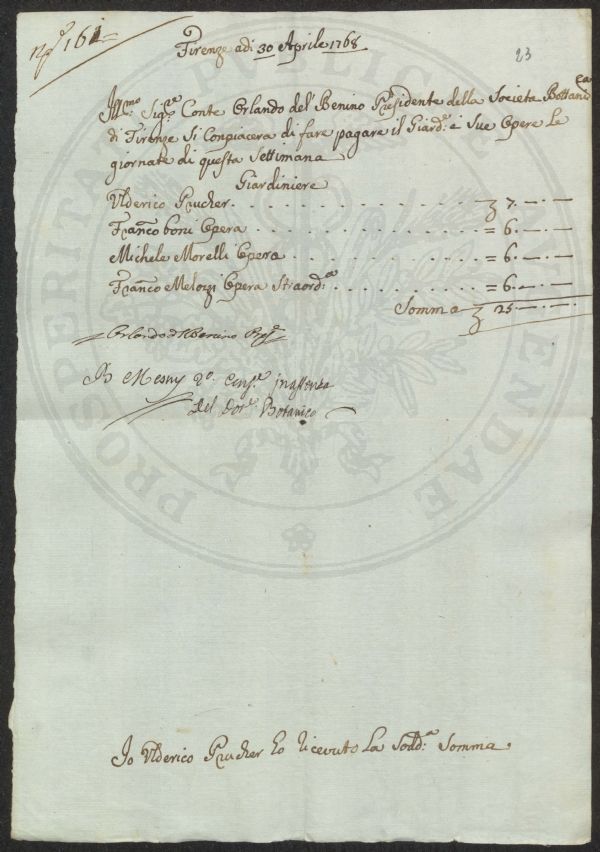 N.º 161
Firenze adi 30 Aprile 1768
23
Ill:mo Sig:re Conte Orlando del Benino Presidente della Societa Bottanica
di Firenze Si Conpiacera di fare pagare il Giard:e e Sue Opere Le
giornate di questa Settimana
Giardiniere
Ulderico Prucher . . . . . . . . . . . . . . . . ʒ 7.—.—
Fran:co boni Opera . . . . . . . . . . . . . . = 6.—.—
Michele Morelli Opera . . . . . . . . . . . = 6.—.—
Fran:co Melozzi Opera Straord:a . . . . . . . = 6.—.—
Somma ʒ 25.—.—
Orlando del Benino Pres:
Mesny 2º. Cons:e in assenza
del Dor:e Botanico
Io Ulderico Prucher ho ricevuto La Sodd:a Somma.
PROSPERITATI PUBLICAE AUGENDAE